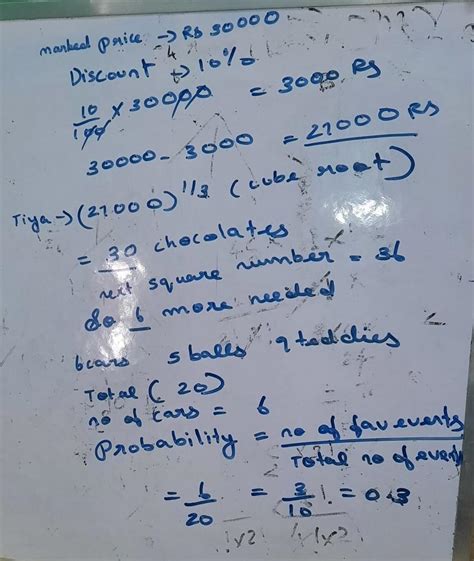 marked price → Rs 30000
Discount → 10%
10/100 × 30000 = 3000 Rs
30000 - 3000 = 27000 Rs
Tiya → (27000)^1/3 (cube root)
= 30 chocolates
next square number = 36
So 6 more needed
6 cars 5 balls 9 teddies
Total (20)
no of cars = 6
Probability = no of fav events / Total no of events
= 6/20 = 3/10 = 0.3